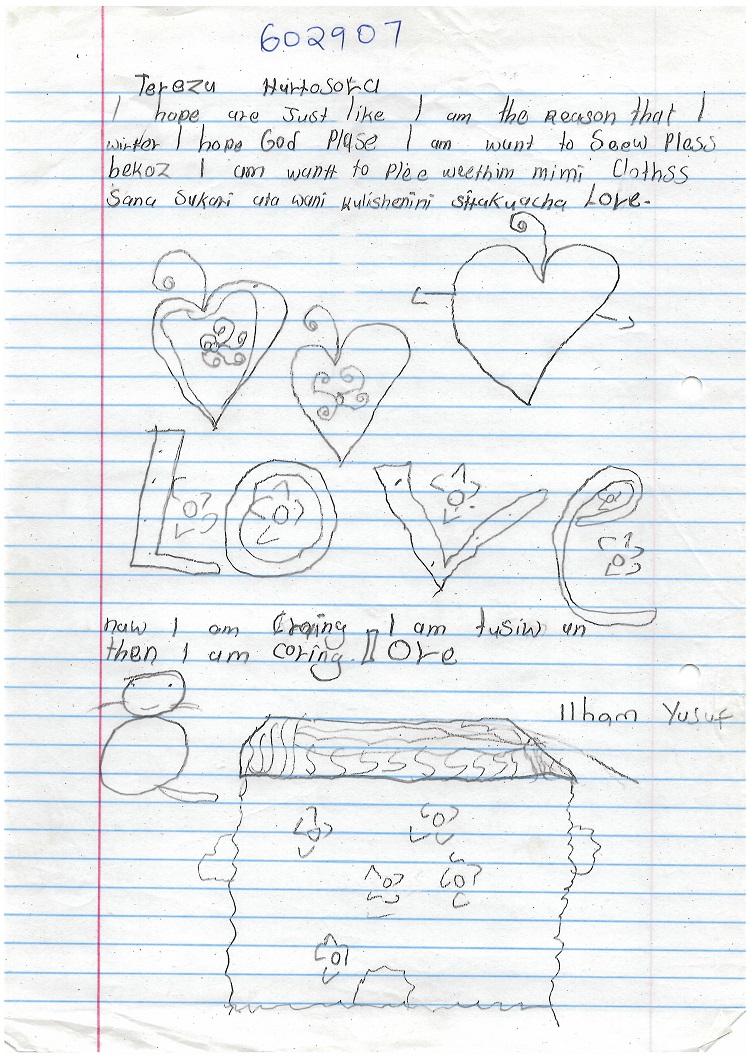 602907
Terezu Hurtosora
I hope are Just like I am the Reason that I
winter I hope God Plase I am want to Seew Plass
bekoz I am wantt to Plee weethim mimi Clothss
Sana Sukari ata wani kulishenini sitakuacha Love.
LOVE
naw I am Craing I am tusiw un
then I am coring Love
Ilham Yusuf